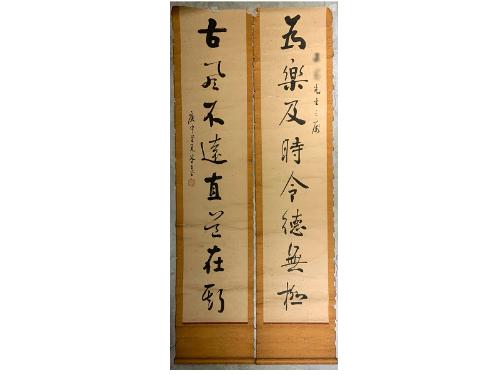 為樂及時令德無極
先生之屬
古風不遠直道在斯
庚申